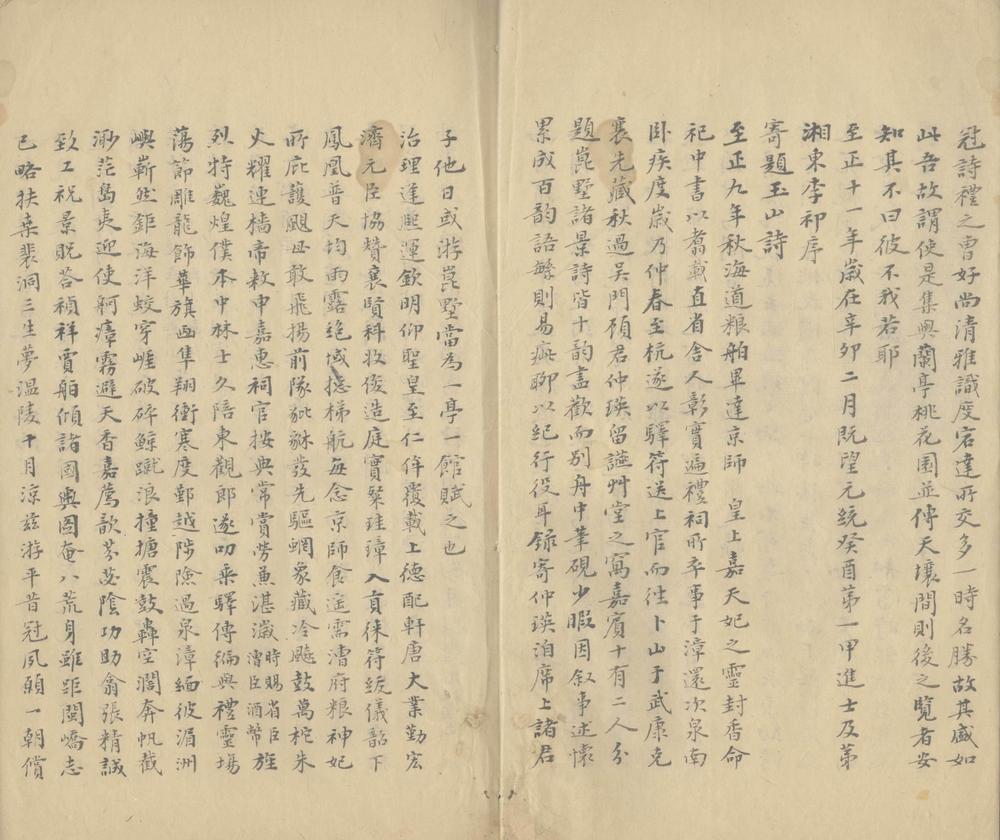 冠詩禮之曹好尚清雅識度宕達所交多一時名勝故其盛如
此吾故謂使是集與蘭亭桃花園並傳天壤間則後之覽者安
知其不曰彼不我若耶
至正十一年歲在辛卯二月既望元統癸酉第一甲進士及第
湘東李祁序
寄題玉山詩
至正九年秋海道粮舶畢達京師 皇上嘉天妃之靈封香命
祀中書以翥載直省舍人彰實遍禮祠所卒事于漳還次泉南
卧疾度歲乃仲春至杭遂以驛符送上官而往卜山于武康克
襄先藏秋過吴門顧君仲瑛留讌艸堂之寓嘉賓十有二人分
題崑墅諸景詩皆十韵盡歡而别舟中筆硯少暇因叙事述懷
累成百韵語緐則易疵聊以紀行役耳錄寄仲瑛洎席上諸君
子他日或游崑墅當為一亭一館賦之也
治理逢熙運欽明仰聖皇至仁侔覆載上德配軒唐大業勤宏
濟元臣協贊襄賢科收俊造庭實粲珪璋入貢徠符綍儀韶下
鳳凰普天均雨露绝域摠梯航每念京師食運需漕府粮神妃
所庇護颶母敢飛揚前隊貔貅發先驅蝄象藏冷飚鼓萬柁朱
火耀連檣帝敕申嘉惠祠官按典常賞勞兼湛濊時賜省臣漕臣酒幣旌
烈特巍煌僕本中林士久陪東觀郎遂叨乘驛傳徧與禮靈場
蕩節雕龍飾華旗画隼翔衝寒度鄞越陟險過泉漳緬彼湄洲
嶼嶄然鉅海洋蛟穿崕破碎鯨蹴浪撞搪震鼓轟空濶奔帆截
渺茫島夷迎使舸瘴霧避天香嘉薦歆芬苾陰功助翕張精誠
致工祝景貺荅禎祥賈舶傾諸國輿圖奄八荒身雖距閩嶠志
已略扶桒裴洞三生夢温陵十月涼兹游平昔冠夙願一朝償